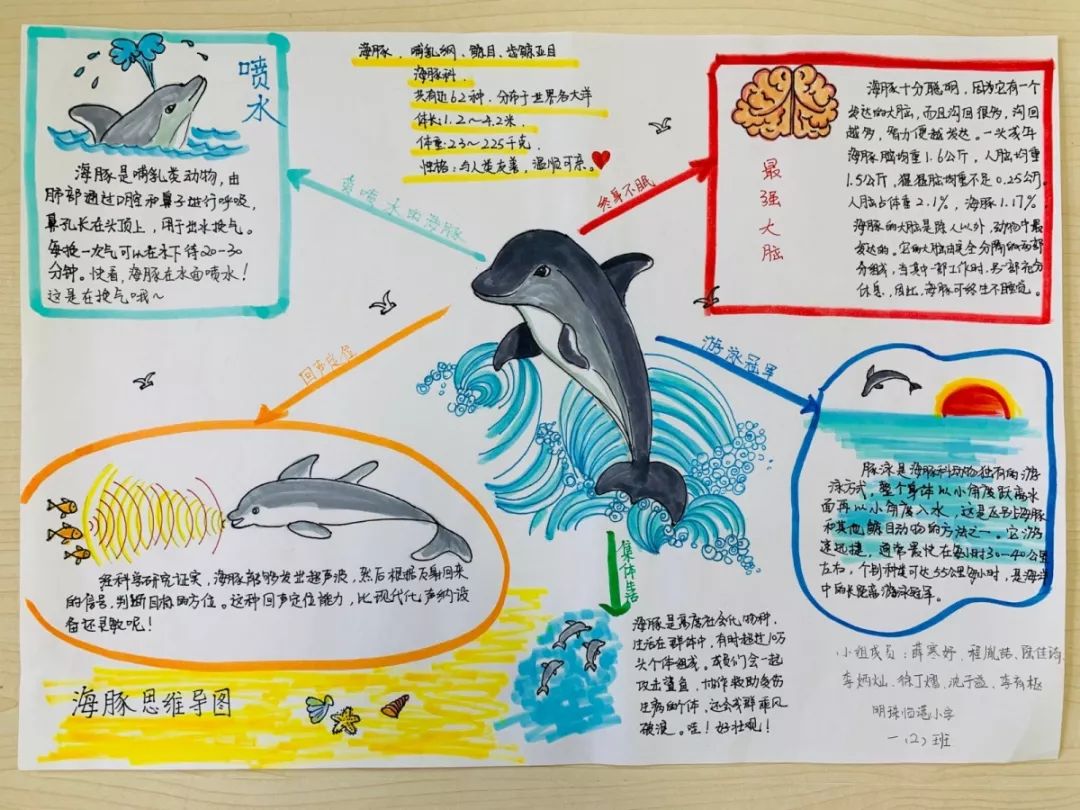 海豚、哺乳纲、鲸目、齿鲸亚目
海豚科、
共有近62种,分布于世界各大洋
体长:1.2~4.2米、
体重:23~225千克、
性格:与人类友善,温顺可亲。
喷水
海豚是哺乳类动物,由
肺部通过口腔和鼻子进行呼吸,
鼻孔长在头顶上,用于出水换气。
每换一次气可以在水下待20-30
分钟。快看,海豚在水面喷水!
这是在换气哦~
会喷水的海豚
终身不眠
最强大脑
海豚十分聪明,因为它有一个
发达的大脑,而且沟回很多,沟回
越多,智力便越发达。一头成年
海豚脑均重1.6公斤,人脑均重
1.5公斤,猩猩脑均重不足0.25公斤。
人脑占体重2.1%,海豚1.17%
海豚的大脑是除人以外,动物中最
发达的。它的大脑由完全分隔的两部
分组成,当其中一部工作时,另一部充分
休息,因此,海豚可终生不睡觉。
回声定位
经科学研究证实,海豚能够发出超声波,然后根据反射回来
的信号,判断目标的方位。这种回声定位能力,比现代化声纳设
备还灵敏呢!
游泳冠军
豚泳是海豚科动物独有的游
泳方式,整个身体以小角度跃离水
面再以小角度入水,这是区别海豚
和其他鲸目动物的方法之一。它游
速迅捷,通常最快在每小时30-40公里
左右,个别种类可达55公里每小时,是海洋
中的长距离游泳冠军。
集体生活
海豚是高度社会化物种,
生活在群体中,有时超过10万
头个体组成。成员们会一起
攻击鲨鱼,协作救助受伤
生病的个体,还会成群乘风
破浪。哇!好壮观!
海豚思维导图
小组成员:薛寒妤、程胤
李炳灿、徐丁熠、沈子益、李有
明珠归莲小学
一(2)班